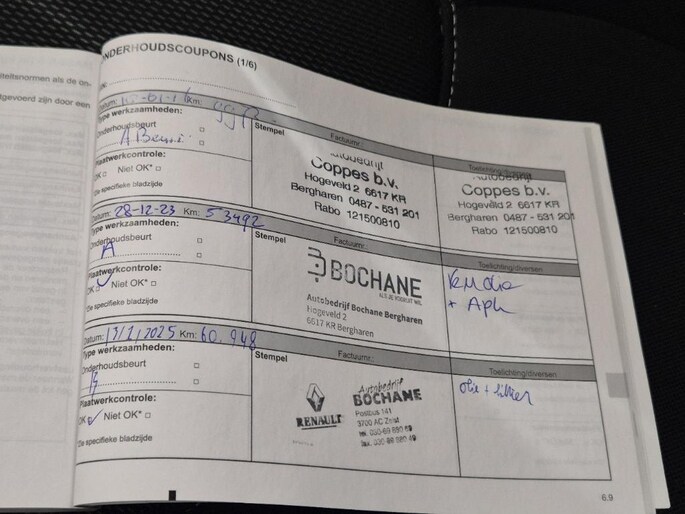 ONDERHOUDSCOUPONS (1/6)
iteitsnormen als de on-
tgevoerd zijn door een
Datum: Km:
Type werkzaamheden:
Onderhoudsbeurt
A Beurt
Plaatwerkcontrole:
OK Niet OK*
*Zie specifieke bladzijde
Stempel
Factuurnr.:
Autobedrijf
Coppes b.v.
Hogeveld 2 6617 KR
Bergharen 0487 - 531 201
Rabo 121500810
Toelichting/diversen
Autobedrijf
Coppes b.v.
Hogeveld 2 6617 KR
Bergharen 0487 - 531 201
Rabo 121500810
Datum: 28-12-23 Km: 53492
Type werkzaamheden:
Onderhoudsbeurt
A
Plaatwerkcontrole:
OK Niet OK*
*Zie specifieke bladzijde
Stempel
Factuurnr.:
BOCHANE
Autobedrijf Bochane Bergharen
Hogeveld 2
6617 KR Bergharen
Toelichting/diversen
+ Apk
Datum: Km: 60.948
Type werkzaamheden:
Onderhoudsbeurt
Plaatwerkcontrole:
OK Niet OK*
*Zie specifieke bladzijde
Stempel
Factuurnr.:
RENAULT
Autobedrijf
BOCHANE
Postbus 141
3700 AC Zeist
Toelichting/diversen
olie + filter
6.9